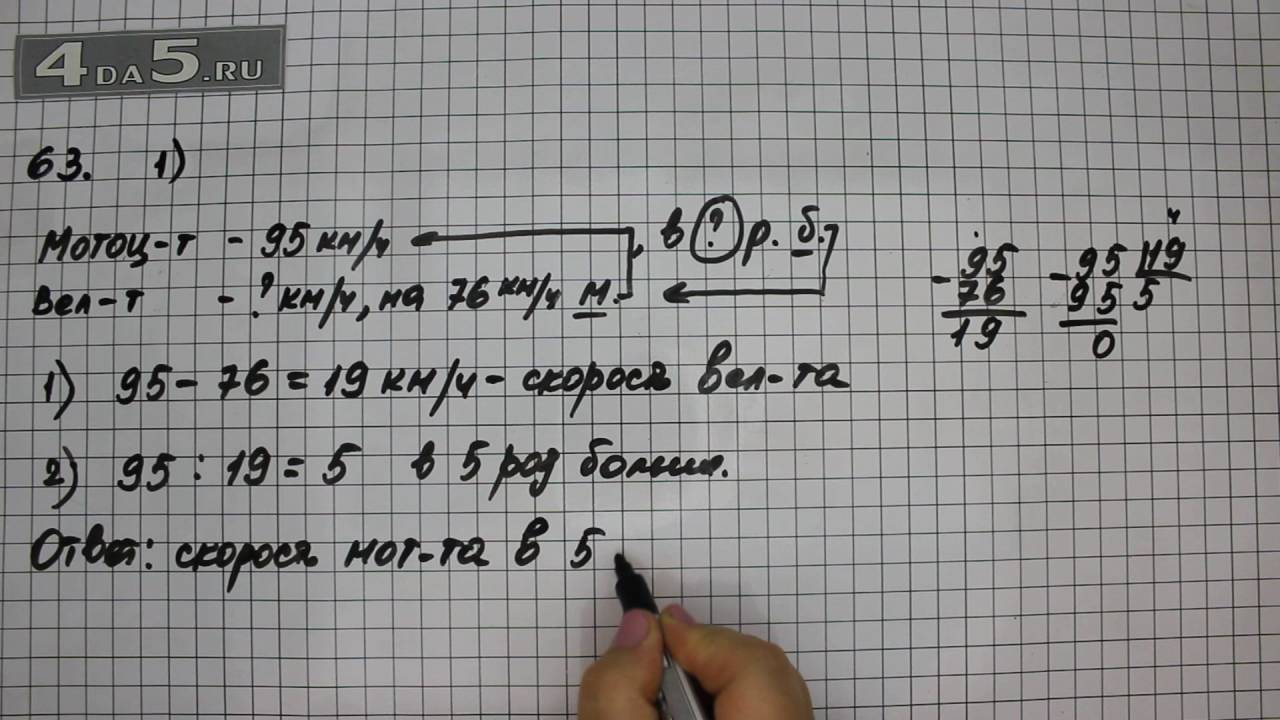 4DA5.RU
63. 1)
Мотоц-т - 95 км/ч в ? р. б.
Вел-т - ? км/ч, на 76 км/ч м.
1) 95 - 76 = 19 км/ч - скорость вел-та
2) 95 : 19 = 5 в 5 раз больше.
Ответ: скорость мот-та в 5
95
- 76
19
ч
- 95 19
95 5
0